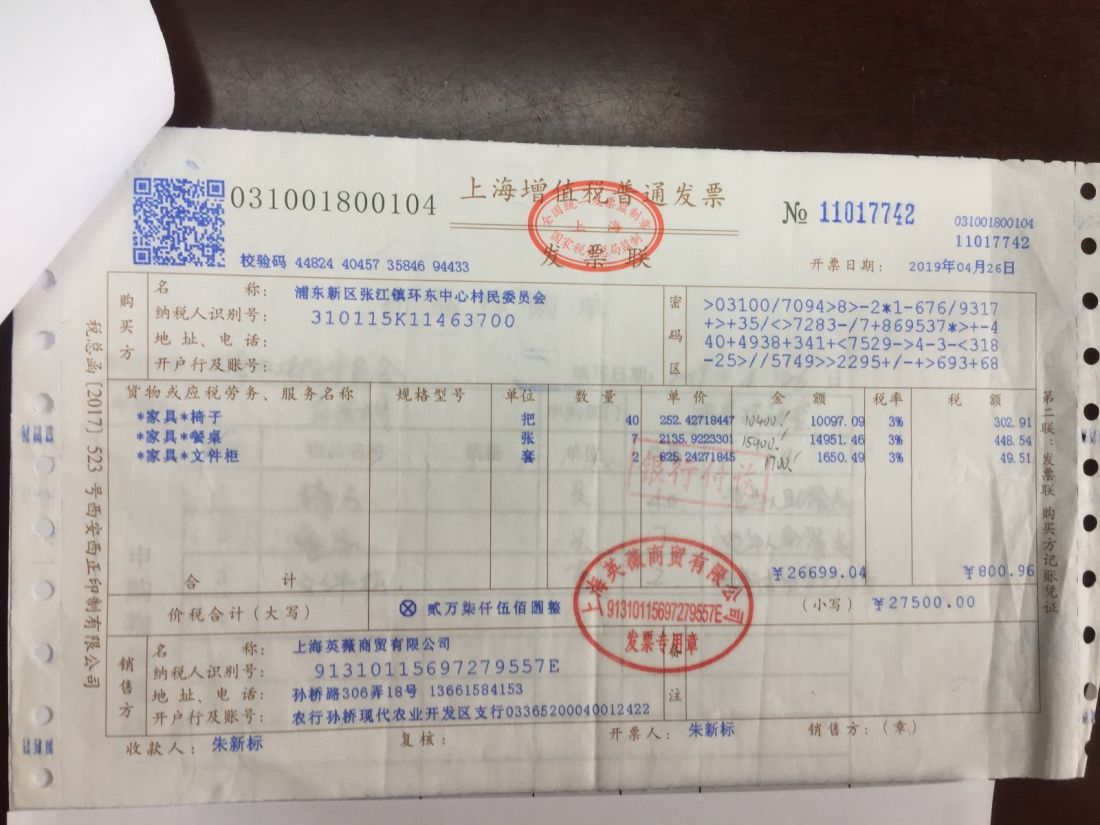 031001800104
上海增值税普通发票
全国统一发票监制章
上海
国家税务总局监制
发票联
№ 11017742
031001800104
11017742
校验码 44824 40457 35846 94433
开票日期: 2019年04月26日
购买方
名称: 浦东新区张江镇环东中心村民委员会
纳税人识别号: 310115K11463700
地址、电话:
开户行及账号:
密码区
>03100/7094>8>-2*1-676/9317
+>+35/<>7283-/7+869537*>+-4
40+4938+341+<7529->4-3-<318
-25>//5749>>2295+/-+>693+68
货物或应税劳务、服务名称 规格型号 单位 数量 单价 金额 税率 税额
*家具*椅子 把 40 252.42718447 10400! 10097.09 3% 302.91
*家具*餐桌 张 7 2135.9223301 15400! 14951.46 3% 448.54
*家具*文件柜 套 2 825.24271845 1700! 1650.49 3% 49.51
银行付讫
合计 ¥26699.04 ¥800.96
价税合计(大写) ⊗ 贰万柒仟伍佰圆整 (小写) ¥27500.00
上海英薇商贸有限公司
91310115697279557E
发票专用章
销售方
名称: 上海英薇商贸有限公司
纳税人识别号: 91310115697279557E
地址、电话: 孙桥路306弄18号 13661584153
开户行及账号: 农行孙桥现代农业开发区支行03365200040012422
备注
收款人: 朱新标 复核: 开票人: 朱新标 销售方:(章)
税总函[2017]523号西安西正印制有限公司
第二联:发票联 购买方记账凭证